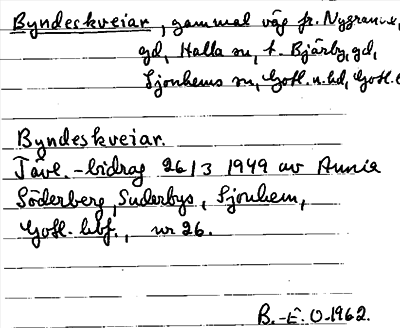 Byndeskveiar, gammal väg fr. Nygranne,
gd, Halla sn, t. Bjärby, gd,
Sjonhems sn, Gotl. n. hd, Gotl.
Byndeskveiar.
Tävl.-bidrag 26/3 1949 av Annie
Söderberg, Suderbys, Sjonhem,
Gotl. hbf., nr 26.
B.-E. O-1962.